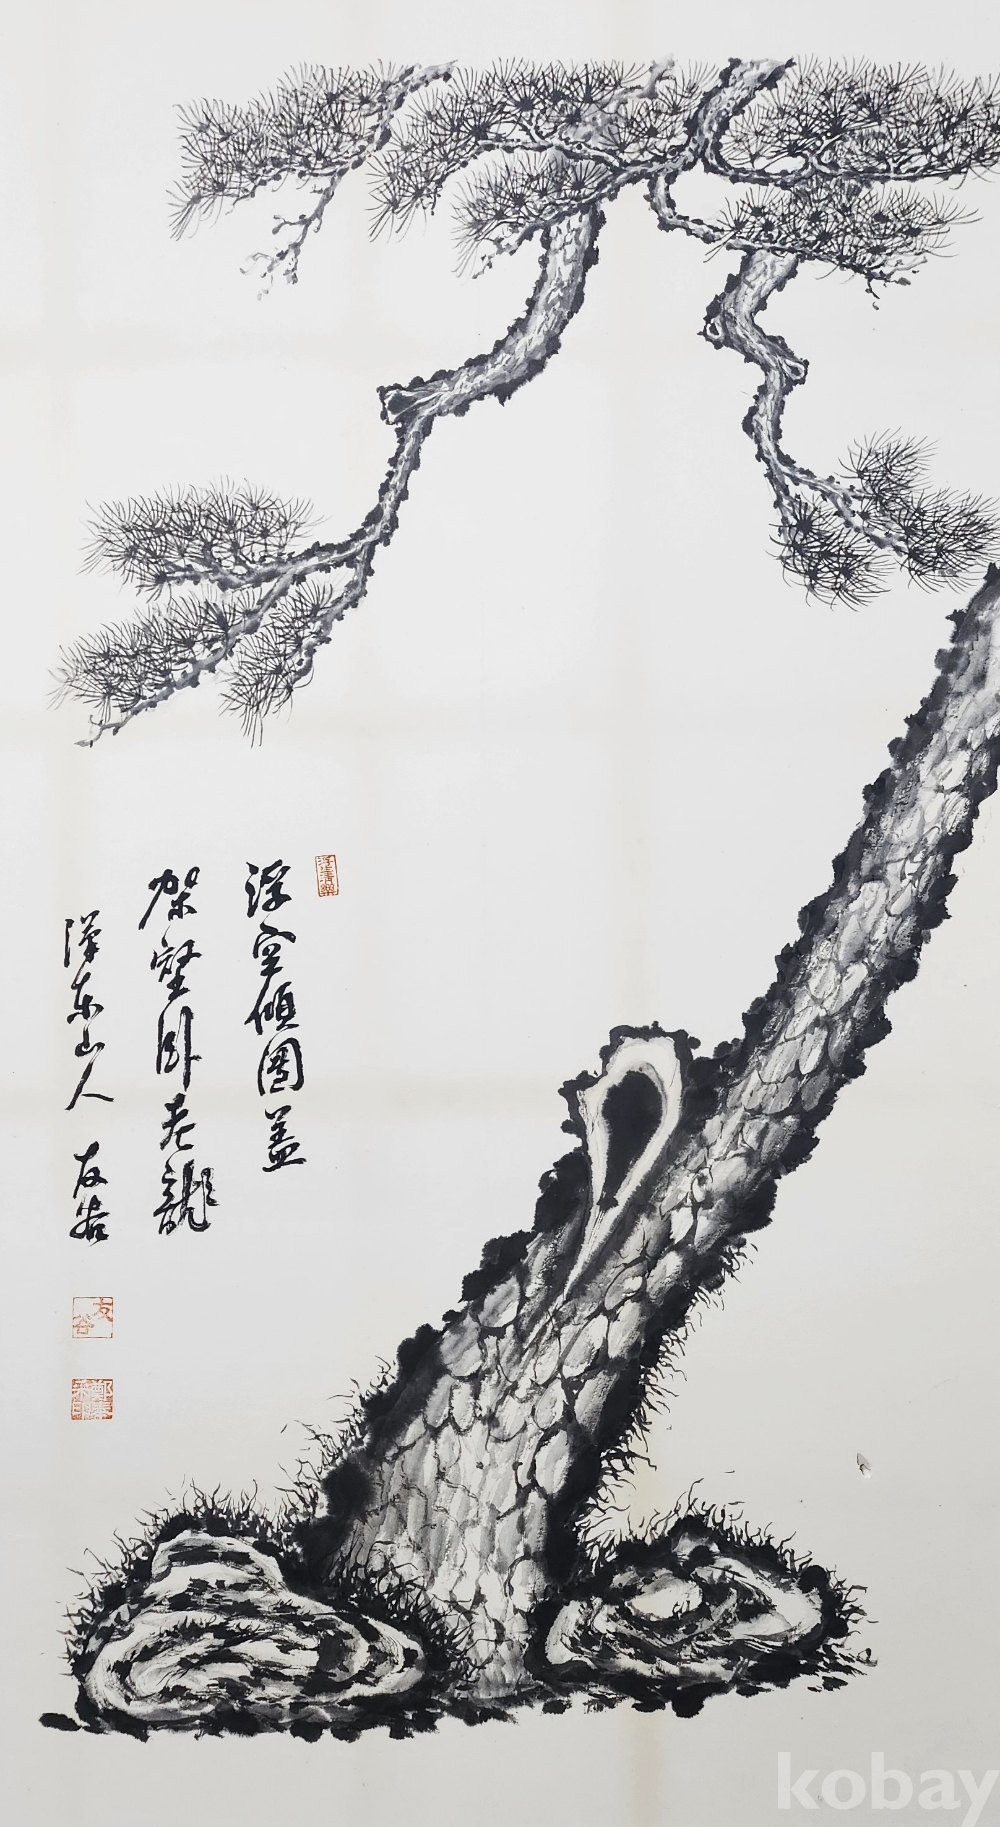 浮空傾圓蓋
架壑臥老龍
漢東山人 友谷
友谷
kobay